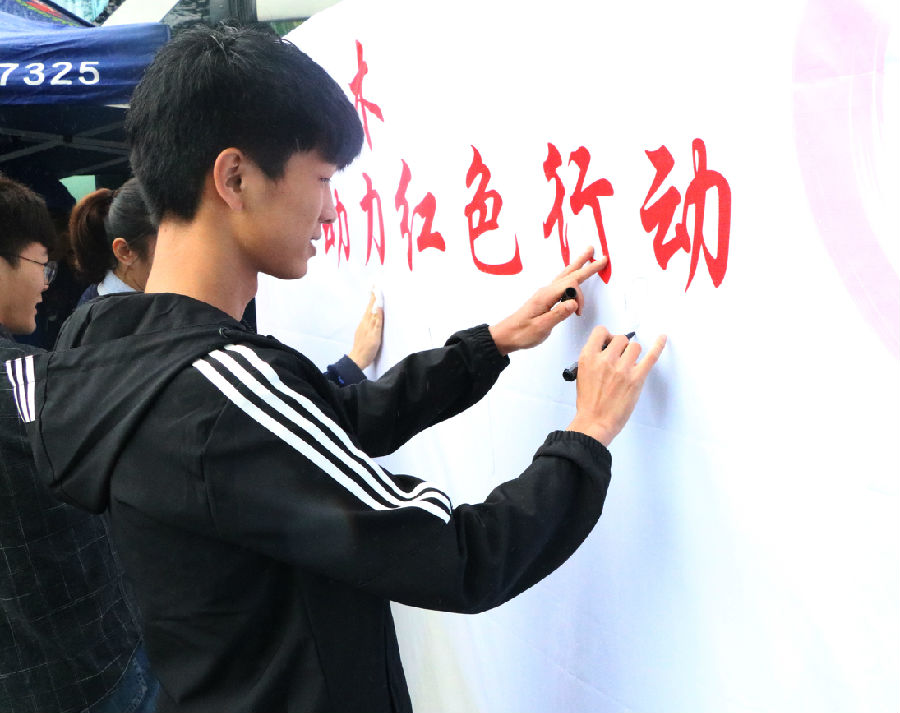 7325
木
动力红色行动